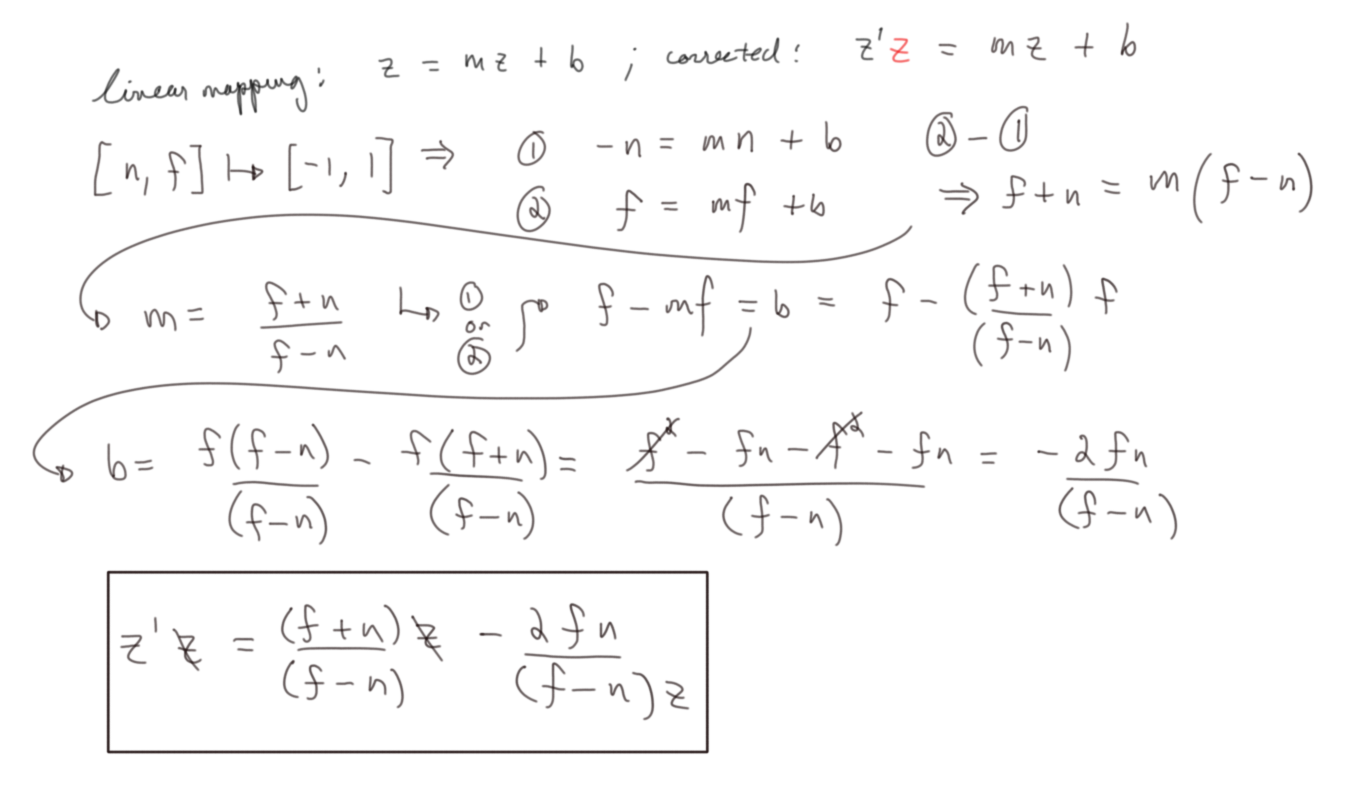 linear mapping: z = mz + b ; corrected: z'z = mz + b
[n, f] ↦ [-1, 1] ⇒ ① -n = mn + b ② - ①
② f = mf + b ⇒ f+n = m(f-n)
m = \frac{f+n}{f-n} ↳ ① or ② f - mf = b = f - \frac{(f+n)}{(f-n)} f
b = \frac{f(f-n)}{(f-n)} - \frac{f(f+n)}{(f-n)} = \frac{f² - fn - f² - fn}{(f-n)} = \frac{-2fn}{(f-n)}
z'z = \frac{(f+n)z}{(f-n)} - \frac{2fn}{(f-n)z}